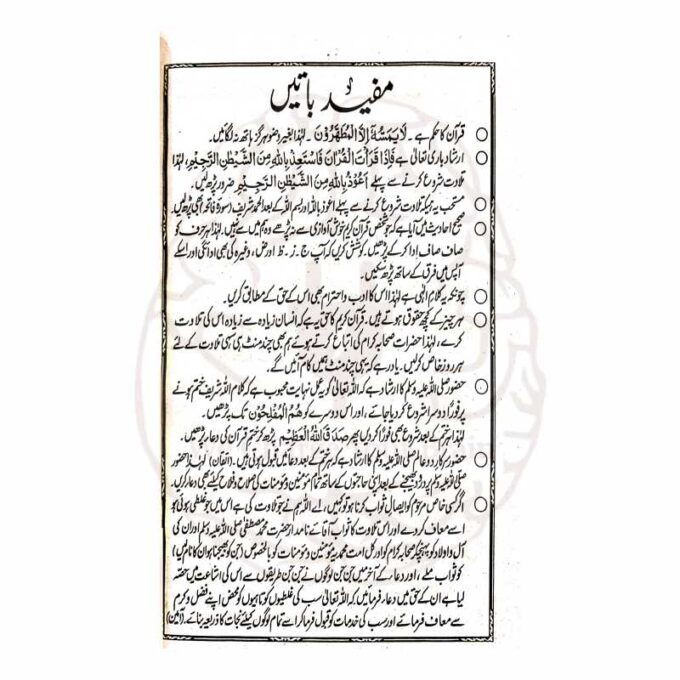 مفید باتیں
قرآن کا حکم ہے۔ لَا يَمَسُّهٗۤ اِلَّا الْمُطَهَّرُوْنَ۔ لہٰذا بغیر وضو ہرگز ہاتھ نہ لگائیں۔
ارشاد باری تعالیٰ ہے فَاِذَا قَرَاْتَ الْقُرْاٰنَ فَاسْتَعِذْ بِاللّٰهِ مِنَ الشَّيْطٰنِ الرَّجِيْمِ، لہٰذا
تلاوت شروع کرنے سے پہلے اَعُوْذُ بِاللّٰهِ مِنَ الشَّيْطٰنِ الرَّجِيْمِ ضرور پڑھ لیں۔
مستحب یہ ہیکہ تلاوت شروع کرنے سے پہلے اعوذ باللہ اور بسم اللہ کے بعد الحمد شریف (سورۃ فاتحہ) بھی پڑھ لیں۔
صحیح احادیث میں آیا ہے کہ جو شخص قرآن کریم خوش آوازی سے نہ پڑھے وہ ہم میں سے نہیں۔ لہٰذا ہر حرف کو
صاف صاف ادا کر کے پڑھیں۔ کوشش کریں کہ آپ ج۔ ز۔ ظ اور ض، وغیرہ کی بھی ادائگی اور اسکے
آپس میں فرق کے ساتھ پڑھ سکیں۔
چونکہ یہ کلام الٰہی ہے لہٰذا اس کا ادب و احترام بھی اس کے حق کے مطابق کریں۔
ہر چیز کے کچھ حقوق ہوتے ہیں۔ قرآن کریم کا حق یہ ہے کہ انسان زیادہ سے زیادہ اس کی تلاوت
کرے، لہٰذا حضرات صحابہ کرام کی اتباع کرتے ہوئے ہم بھی چند منٹ ہی سہی تلاوت کے لئے
ہر روز خاص کر لیں۔ یاد رہے کہ یہی چند منٹ ہمیں کام آئیں گے۔
حضور صلی اللہ علیہ وسلم کا ارشاد ہے کہ اللہ تعالیٰ کو یہ عمل نہایت محبوب ہے کہ کلام اللہ شریف ختم ہونے
پر فوراً دوسرا شروع کر دیا جائے، اور اس دوسرے کو هُمُ الْمُفْلِحُوْنَ تک پڑھیں۔
لہٰذا ہم ختم کے بعد شروع بھی فوراً کر دیا پھر صَدَقَ اللّٰهُ الْعَظِيْمُ پڑھ کر ختم قرآن کی دعاء پڑھیں۔
حضور سرکار دو عالم صلی اللہ علیہ وسلم کا ارشاد ہے کہ ہر ختم کے بعد دعا میں قبول ہوتی ہیں۔ (اتقان) لہٰذا حضور
صلی اللہ علیہ وسلم پر درود بھیجنے کے بعد اپنی حاجتوں کے ساتھ تمام مؤمنین و مؤمنات کی صلاح و فلاح کیلئے بھی دعا کریں۔
اگر کسی خاص مرحوم کو ایصال ثواب کرنا ہو تو کہیں، اے اللہ ہم نے جو تلاوت کی ہے اس میں جو غلطی ہوئی ہو
اسے معاف کر دے اور اس تلاوت کا ثواب آقائے نامدار حضرت محمد مصطفیٰ صلی اللہ علیہ وسلم اور ان کی
آل و اولاد کو پہنچیکہ صحابہ کرام کو اور کل امت محمدیہ مؤمنین و مؤمنات کو بالخصوص (جن کو بھیجنا ہو ان کا نام لیں)
کو ثواب ملے، اور دعاء کے آخر میں جن جن لوگوں نے جن جن طریقوں سے اس کی اشاعت میں حصہ
لیا ہے ان کے حق میں دعاء فرمائیں کہ اللہ تعالیٰ سب کی غلطیوں کو تاہیوں کو محض اپنے فضل و کرم
سے معاف فرمائے اور سب کی خدمات کو قبول فرما کر اسے تمام لوگوں کیلئے نجات کا ذریعہ بنائے۔ (آمین)